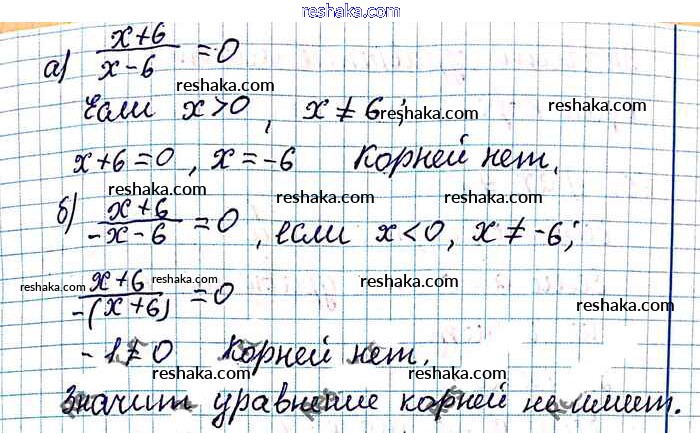 reshaka.com
а) (x+6)/(x-6) = 0
reshaka.com
reshaka.com
Если x>0, x≠6;
reshaka.com
reshaka.com
x+6=0, x=-6 Корней нет.
reshaka.com
reshaka.com
б) (x+6)/(-x-6) = 0, если x<0, x≠-6;
reshaka.com
reshaka.com
reshaka.com reshaka.com reshaka.com
(x+6)/(-(x+6)) = 0
reshaka.com
-1≠0 Корней нет.
reshaka.com
reshaka.com
Значит уравнение корней не имеет.